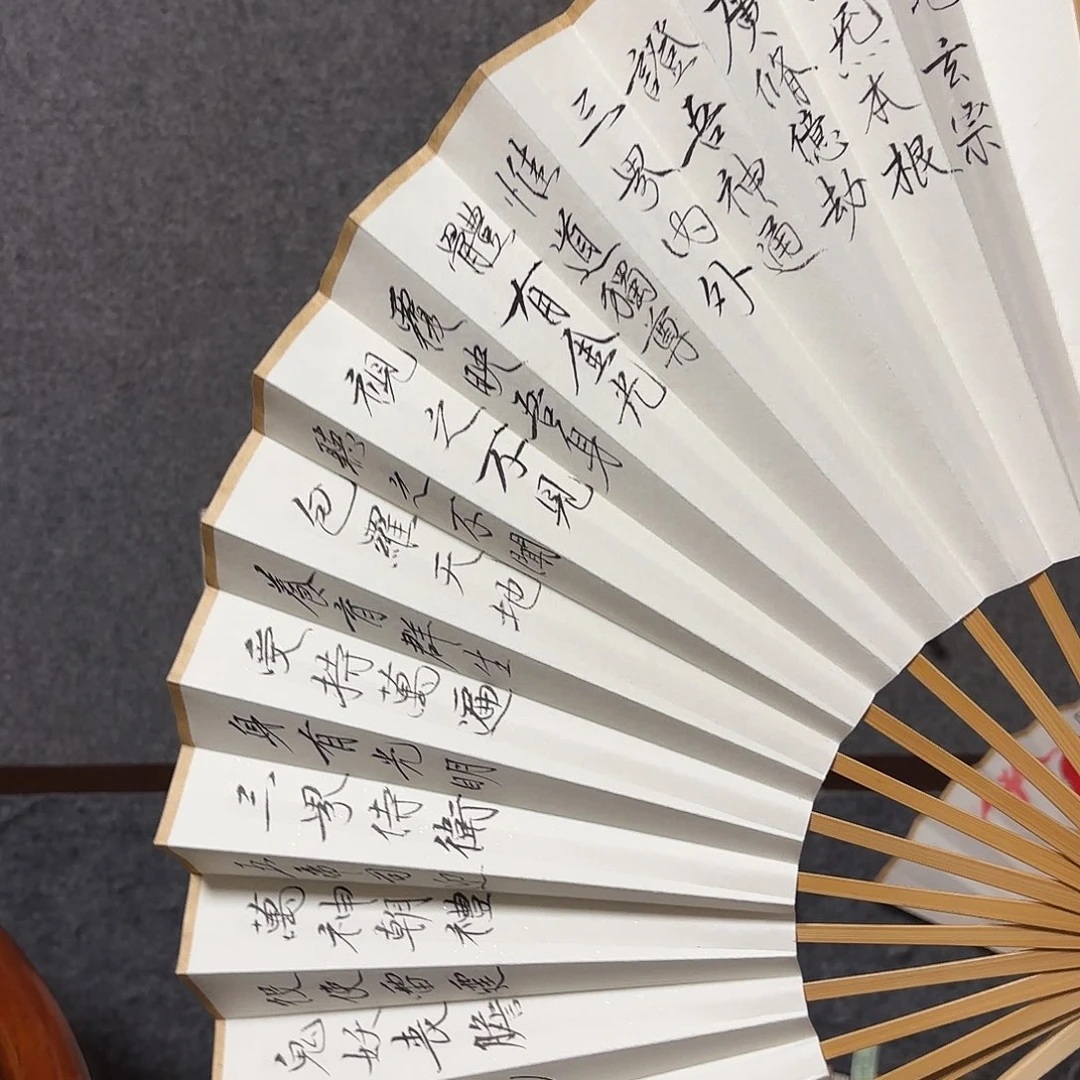 玄宗
炁本根
廣脩億劫
證吾神通
三界內外
惟道獨尊
體有金光
覆映吾身
視之不見
之不聞
包羅天地
養育群生
受持萬遍
身有光明
三界侍衛
五帝司迎
萬神朝禮
役使雷霆
鬼妖喪膽